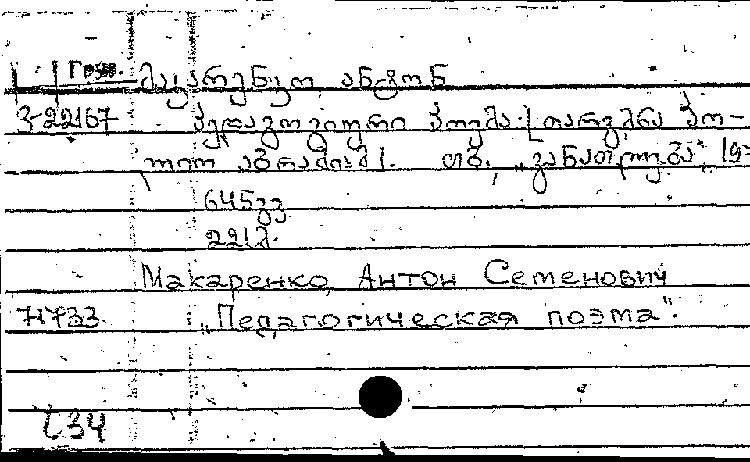 Груз. მაკარენკო, ანტონ
3-22167 პედაგოგიური პოემა. [თარგმნა პო-
ლიო აბრამიამ]. თბ., „განათლება", 19
645გვ.
221მ.
Макаренко, Антон Семенович
71733 „Педагогическая поэма".
634